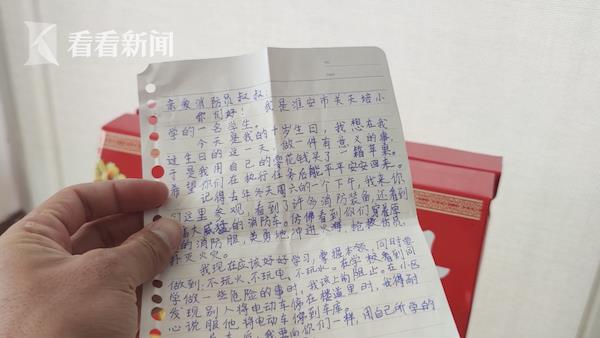 看看新闻
亲爱消防员叔叔:
你们好! 我是淮安市关天培小
学的一名学生。
今天是我的十岁生日,我想在我
过生日的这一天,做一件有意义的事,
于是我用自己的零花钱买了一箱苹果。
希望你们在执行任务后能平平安安回来。
记得去年冬天周六的一个下午,我来你
们这里参观,看到了许多消防装备,还看到
高大威猛的消防车。仿佛看到你们穿着厚
的消防服,英勇地冲进火场,抢救伤员,
扑灭火灾。
我现在应该好好学习,掌握本领,同时要
做到:不玩火、不玩电、不玩水。在学校看到同
学做一些危险的事时,我该上前阻止。在小区
发现别人将电动车停在楼道里时,我得耐
心说服他,将电动车停到车库。
我要向你们一样,用自己所学的